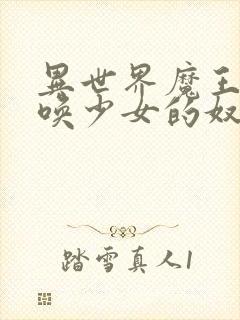 異世界魔王
喚少女的奴
踏雪真人1